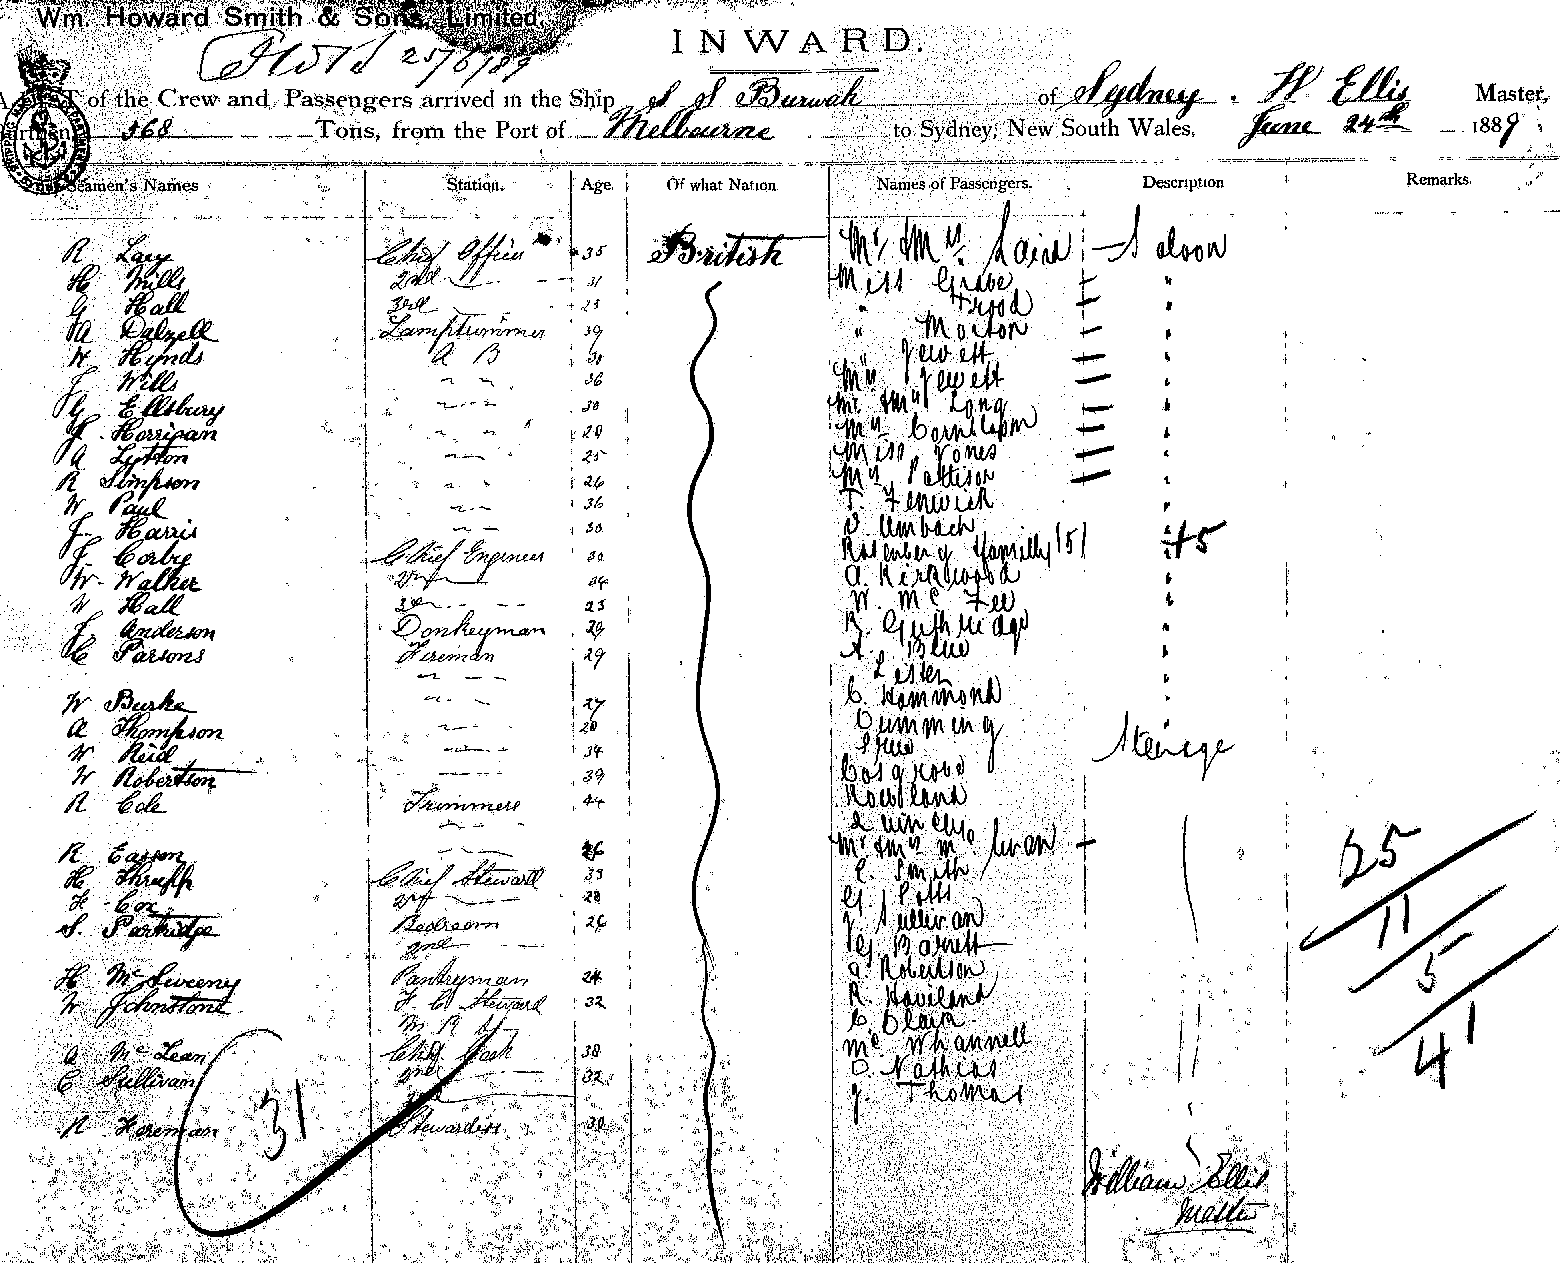 Wm. Howard Smith & Sons, Limited.
25/6/89
INWARD.
of the Crew and Passengers arrived in the Ship S S Burwah of Sydney. W Ellis Master,
568 Tons, from the Port of Melbourne to Sydney, New South Wales, June 24th 1889
Seamen's Names Station. Age. Of what Nation Names of Passengers. Description Remarks.
R Lacy Chief Officer 35 British Mr & Mrs Laird — Saloon
H Mills 2nd — 31 Miss Grabe — "
G Hall 3rd — 23 " Frood — "
A Dalzell Lamptrimmer 39 " Morton — "
W Hynds A B 30 " Jewett — "
J Wills " " 36 Mrs Jewett — "
G Ellsbury " " 30 Mr & Mrs Long — "
J. Horrigan " " 29 Mrs — "
A Lytton " " 25 Miss Jones — "
R Simpson " " 26 Mrs Pattison — "
W Paul " " 36 T. Fenwick "
J. Harris " " 30 Umbach "
J. Corby Chief Engineer 30 Rosenberg Family (5) +5
W. Walker 2nd — 34 A. Kirkwood "
W Hall 3rd — 23 W. Mc Fee "
J. Anderson Donkeyman 29 R. Guthridge "
C Parsons Fireman 29 A. Blue "
" " Lister "
W Burke " " 27 C Hammond "
A Thompson " " 28 Cumming "
W Reid " " 34 Steerage
W Robertson " " 39 Cosgrove
R Cole Trimmers 44 Rowland
" "
R Easson " " 26 Mr & Mrs Mc — 25
H Thrupp Chief Steward 33 E. Smith
H Cox 2nd — 28 G. Potts
S. Partridge Bedroom 26 J Sullivan 11
2nd — G Barrett
H McSweeny Pantryman 24 A Robertson 5
W Johnstone F C Steward 32 R. Haviland
M R S C Blair
A McLean Chief Cook 38 Mc Whannell 41
C Sullivan 2nd 32 Nathias
3rd J. Thomas
R Foreman Stewardess 30
31
William Ellis
Master